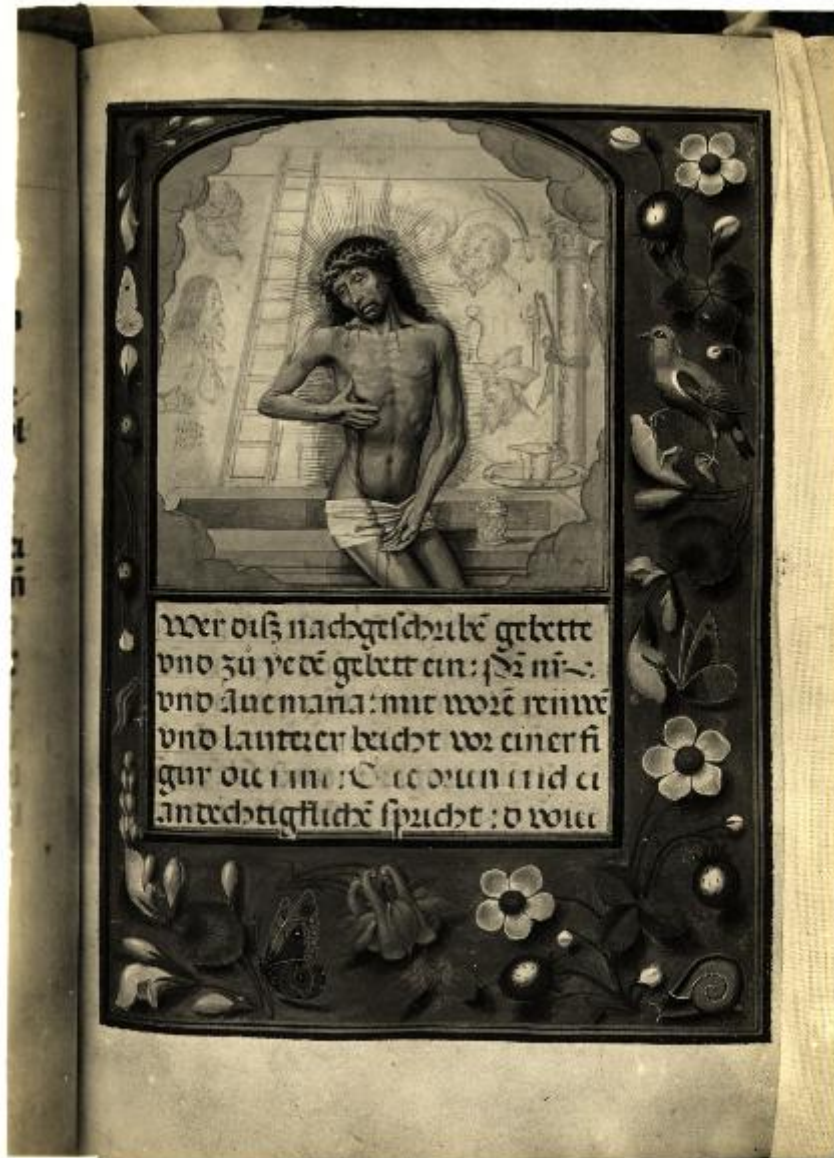 Wer diſz nachgeſchribē gebette
vnd zů yedē gebett ein: pr̄ nr̄
vnd Aue maria: mit worē reüwē
vnd lauterer beicht vor einer fi
gur die
andechtigklichē ſpricht: d wirt